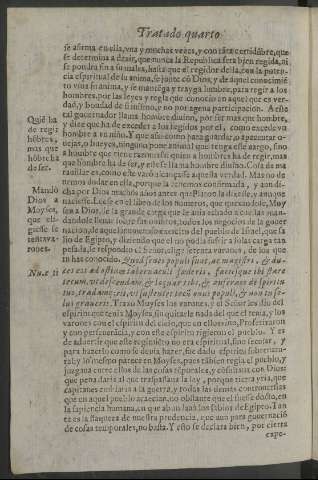 Tratado quarto
se afirma en ella, vna y muchas vezes, y con tãta certidũbre, que
se determina a dezir, que nunca la Republica sera bien regida, ni
se pondra fin a su males, hasta que el regidor della, con la poten-
cia espiritual de su anima, se junte cõ Dios, y de aquel conocimiẽ
to viua su anima, y se mantẽga y trayga lumbre, para regir a los
hombres, por las leyes y regla que conocio en aquel que es ver-
dad, y bondad de si mismo, e no por agena participacion. A esta
tal gouernador llama hombre diuino, por ser mas que hombre,
y dize que ha de exceder a los regidos por el, como excede vn
hombre a vn niño. Y que assi como para guardar, o apacentar o-
uejas, o bueyes, ninguno pone animal que tenga este cargo, sino
a hombre que tiene razon: assi quien a hombres ha de regir, mas
que hombre ha de ser, y este se llama hombre diuino. Cosa de ma
rauillar es, como este varõ alcançasse aquesta verdad. Mas no de-
uemos dudar en ella, porque la tenemos confirmada, y aun di-
cha por Dios muchos años antes que Platon la dixesse, y aun que
naciesse. Leese en el libro de los numeros, que quexandose, Moy
sen a Dios, de la grande carga que le auia echado acuestas man-
dandole lleuar sobre sus ombros, todos los negocios de la gouer
nacion, de aquel numeroso exercito del pueblo de Israel, que sa
lio de Egipto, y diziendo que el no podia sufrir a solas carga tan
pesada, le respondio el Señor, elige setenta varones, de los que
tu has conocido. Quod senes populi sunt, ac magistri, & du-
ces eos ad ostium tabernaculi federis, faciesque ibi stare
tecum, vt descendam, & loquar tibi, & auferam de spiritu
tuo, tradamque eis, vt sustentent tecum onus populi, & non tu so-
lus graueris. Traxo Moysen los varones, y el Señor les dio del
espiritu que tenia Moysen, sin quitarle nada del que el tenia, y los
varones con el espiritu del cielo, que en ellos vino, Profetizaron
y con perseuerancia, y con este espiritu rigieron el pueblo. Y es
de aduertir que este regimiẽto no era espiritual, sino secular, y
para hazerlo como se deuia hazer, fue dado espiritu sobrenatu-
ral: y lo mesmo parece en Moysen, pues tãbien regia el pueblo, y
juzgaua entre ellos de las cosas tẽporales, y cõsultaua con Dios:
que pena daria al que traspassaua la ley, porque tierra yria, que
capitanes embiaria a la guerra, y todas las demas controuersias
que en aquel pueblo acaecian, no obstante que el fuesse docto, en
la sapiencia humana, en que abundauan los sabios de Egipto. Tan
ta es la flaqueza de nuestra prudencia, que aun para gouernaciõ
de cosas temporales, no basta. Y esto se declara bien, por cierta
expe-
Quiẽ ha
de regir
hõbres,
mas que
hõbre ha
de ser.
Mandò
Dios a
Moysen,
que eli-
giesse se
tenta va-
rones.
Nu. c. 11